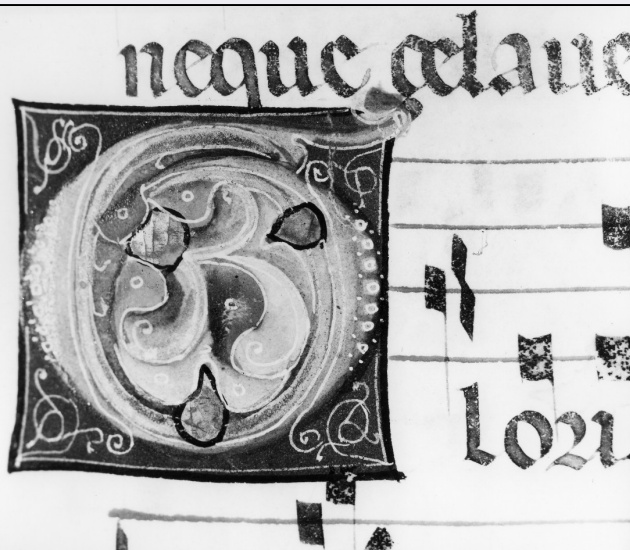 neque celaue
loꝛu